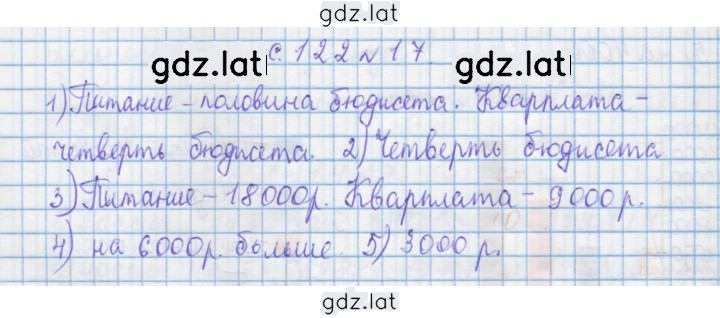 gdz.lat
с. 122 № 17.
gdz.lat gdz.lat
1) Питание - половина бюджета. Квартплата -
четверть бюджета. 2) Четверть бюджета
3) Питание - 18000р. Квартплата - 9000р.
4) на 6000р. больше. 5) 3000р.
gdz.lat